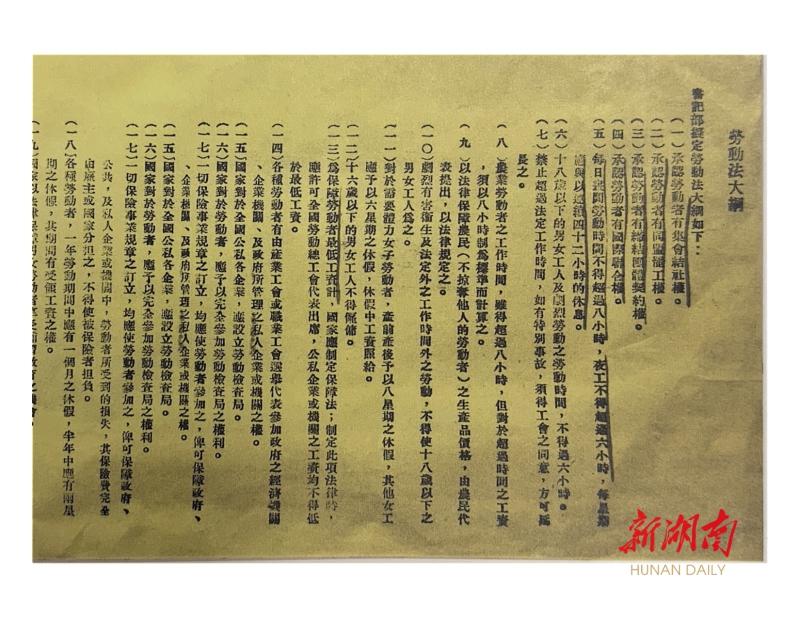 勞動法大綱
書記部擬定勞動法大綱如下：
（一）承認勞動者有集會結社權。
（二）承認勞動者有同盟罷工權。
（三）承認勞動者有締結團體契約權。
（四）承認勞動者有國際聯合權。
（五）每日晝間勞動時間不得超過八小時，夜工不得超過六小時，每星期
應與以連續四十二小時的休息。
（六）十八歲以下的男女工人及劇烈勞動之勞動時間，不得過六小時。
（七）禁止超過法定工作時間，如有特別事故，須得工會之同意，方可延
長之。
（八）農業勞動者之工作時間，雖得超過八小時，但對於超過時間之工資
，須以八小時制為標準而計算之。
（九）以法律保障農民（不掠奪他人的勞動者）之生產品價格，由農民代
表提出，以法律規定之。
（一〇）劇烈有害衛生及法定外之工作時間外之勞動，不得使十八歲以下之
男女工人為之。
（一一）對於需要體力女子勞動者，產前產後予以八星期之休假，其他女工
應予以六星期之休假，休假中工資照給。
（一二）十六歲以下的男女工人不得僱傭。
（一三）為保障勞動者最低工資計，國家應制定保障法；制定此項法律時，
應許可全國勞動總工會代表出席，公私企業或機關之工資均不得低
於最低工資。
（一四）各種勞動者有由產業工會或職業工會選舉代表參加政府之經濟機關
、企業機關、及政府所管理之私人企業或機關之權。
（一五）國家對於全國公私各企業，應設立勞動檢查局。
（一六）國家對於勞動者，應予以完全參加勞動檢查局之權利。
（一七）一切保險事業規章之訂立，均應使勞動者參加之，俾可保障政府、
、企業機關、及政府所管理之私人企業或機關之權。
（一五）國家對於全國公私各企業，應設立勞動檢查局。
（一六）國家對於勞動者，應予以完全參加勞動檢查局之權利。
（一七）一切保險事業規章之訂立，均應使勞動者參加之，俾可保障政府、
公共，及私人企業或機關中，勞動者所受到的損失，其保險費完全
由雇主或國家分担之，不得使被保險者担負。
（一八）各種勞動者，一年勞動期間中應有一個月之休假，半年中應有兩星
期之休假，其期間有受領工資之權。
（一九）國家以法律保障男女勞動者享受補習教育之機會。
新湖南
HUNAN DAILY